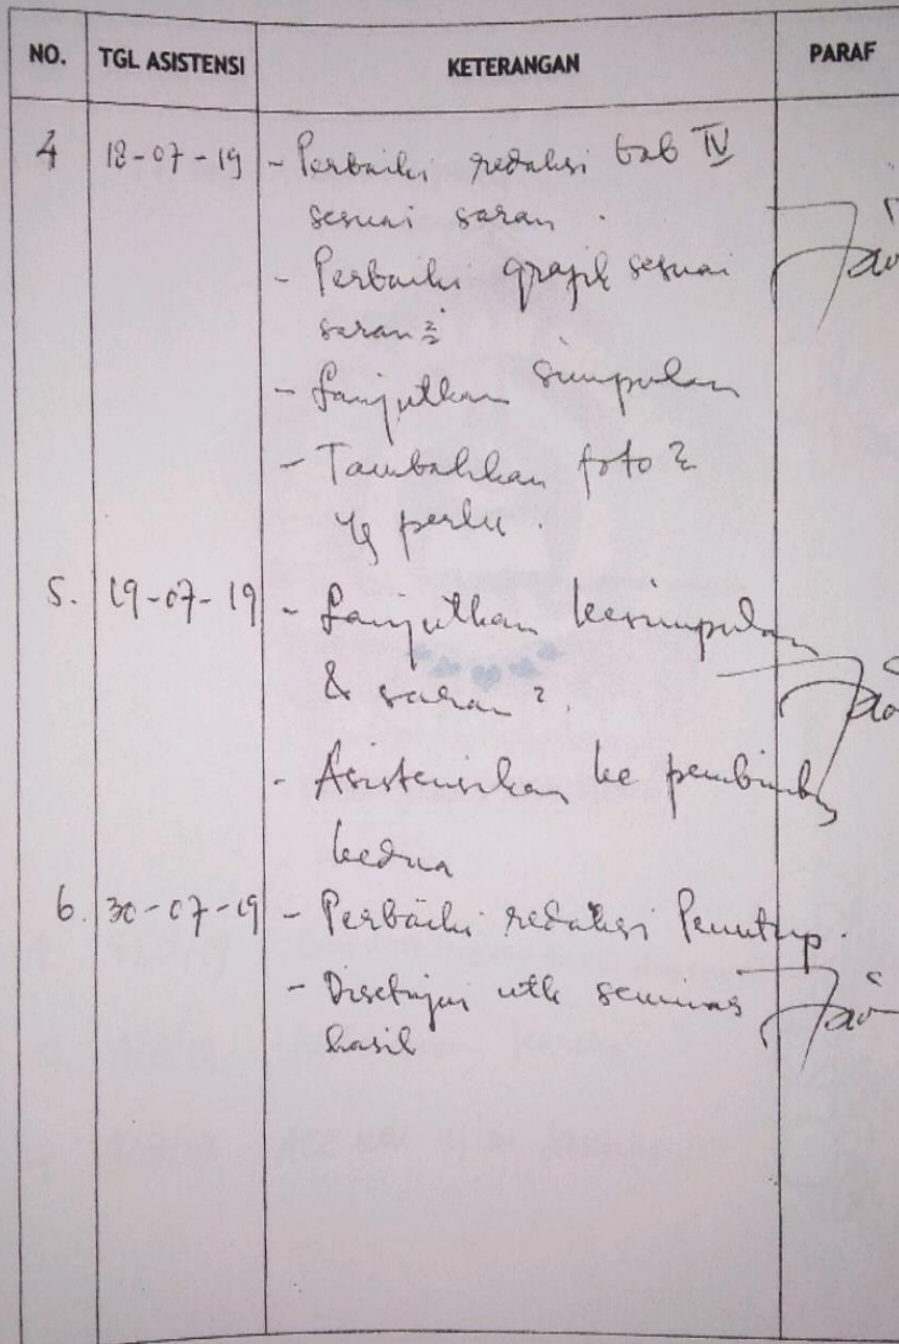 NO. TGL ASISTENSI KETERANGAN PARAF
4 18-07-19 - Perbaiki redaksi bab IV
sesuai saran.
- Perbaiki grafik sesuai
saran2
- Lanjutkan simpulan
- Tambahkan foto2
yg perlu.
5. 19-07-19 - Lanjutkan kesimpulan
& saran2.
- Asistensikan ke pembimbing
kedua
6. 30-07-19 - Perbaiki redaksi Penutup.
- Disetujui utk seminar
hasil